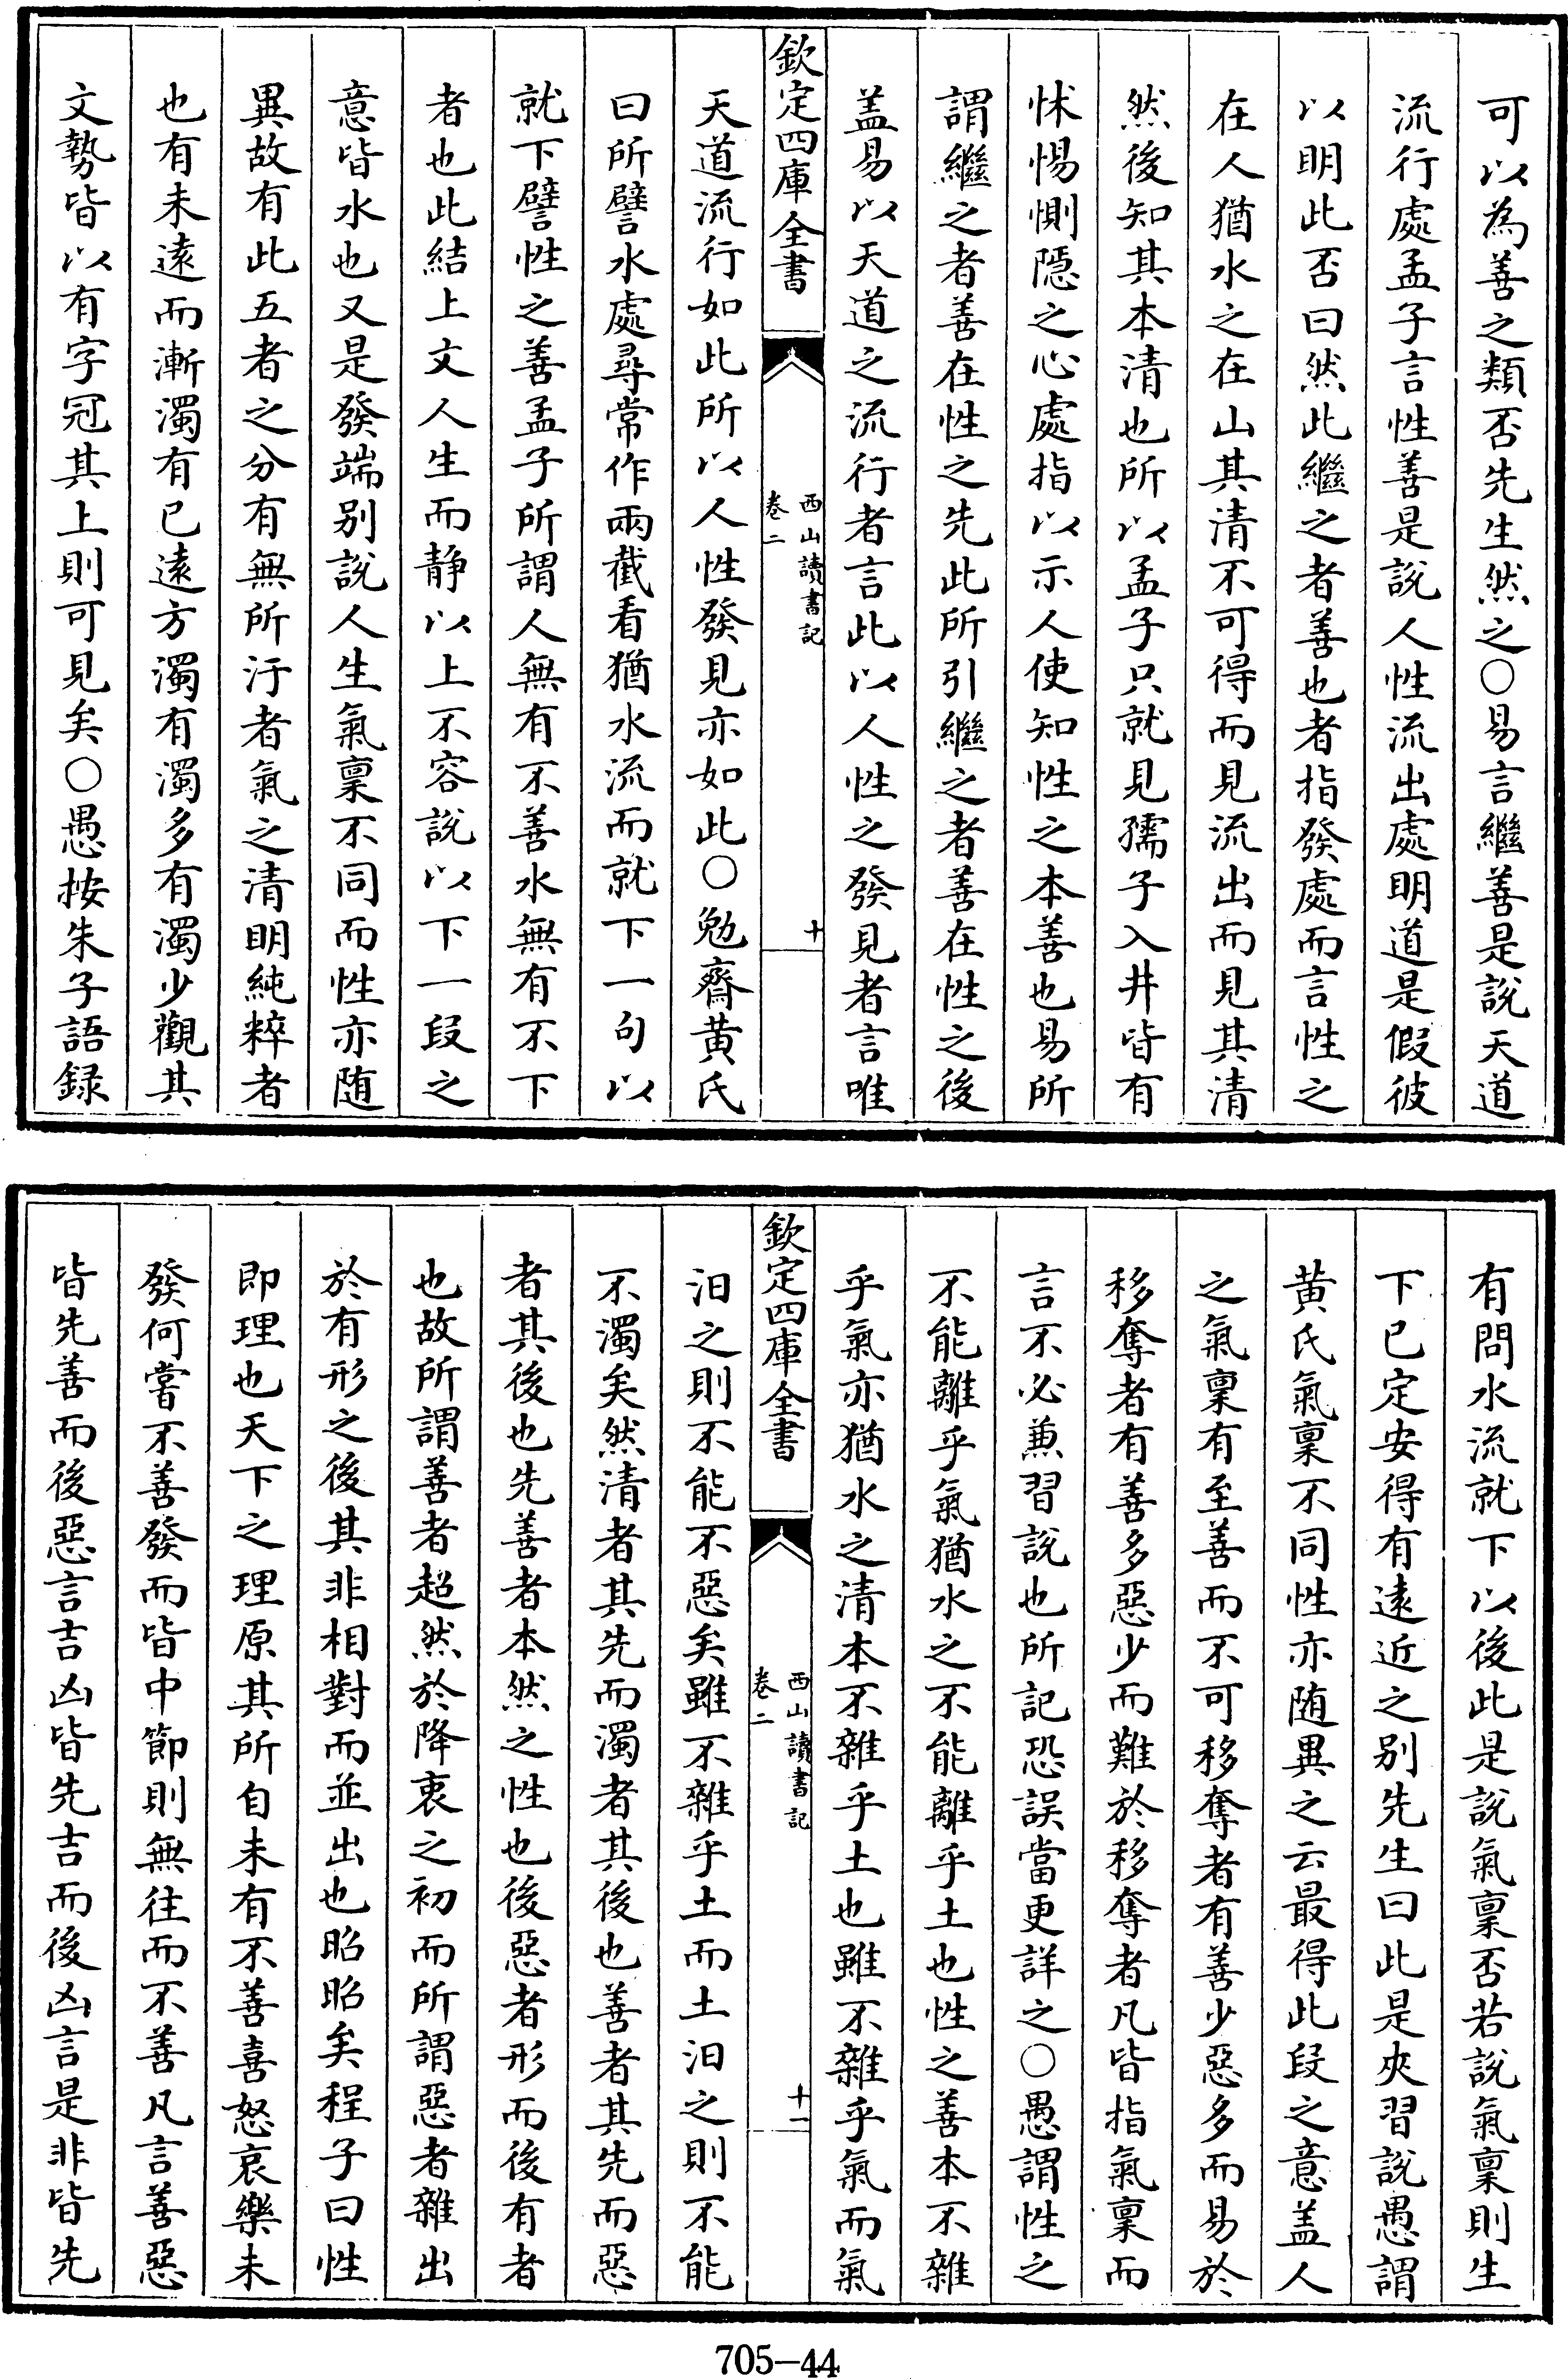 可以為善之類否先生然之○易言繼善是說天道
流行處孟子言性善是說人性流出處明道是假彼
以明此否曰然此繼之者善也者指發處而言性之
在人猶水之在山其清不可得而見流出而見其清
然後知其本清也所以孟子只就見孺子入井皆有
怵惕惻隠之心處指以示人使知性之本善也易所
謂繼之者善在性之先此所引繼之者善在性之後
盖易以天道之流行者言此以人性之發見者言唯
欽定四庫全書
西山讀書記
卷二
十
天道流行如此所以人性發見亦如此○勉齋黄氏
曰所譬水處尋常作兩截看猶水流而就下一句以
就下譬性之善孟子所謂人無有不善水無有不下
者也此結上文人生而静以上不容說以下一段之
意皆水也又是發端别說人生氣稟不同而性亦随
異故有此五者之分有無所汙者氣之清明純粹者
也有未逺而漸濁有已逺方濁有濁多有濁少觀其
文勢皆以有字冠其上則可見矣○愚按朱子語録
有問水流就下以後此是說氣稟否若說氣稟則生
下已定安得有逺近之别先生曰此是夾習說愚謂
黄氏氣稟不同性亦随異之云最得此段之意盖人
之氣稟有至善而不可移奪者有善少惡多而易於
移奪者有善多惡少而難於移奪者凡皆指氣稟而
言不必兼習說也所記恐誤當更詳之○愚謂性之
不能離乎氣猶水之不能離乎土也性之善本不雜
乎氣亦猶水之清本不雜乎土也雖不雜乎氣而氣
欽定四庫全書
西山讀書記
卷二
十一
汩之則不能不惡矣雖不雜乎土而土汩之則不能
不濁矣然清者其先而濁者其後也善者其先而惡
者其後也先善者本然之性也後惡者形而後有者
也故所謂善者超然於降衷之初而所謂惡者雜出
於有形之後其非相對而並出也昭昭矣程子曰性
即理也天下之理原其所自未有不善喜怒哀樂未
發何嘗不善發而皆中節則無往而不善凡言善惡
皆先善而後惡言吉凶皆先吉而後凶言是非皆先
705-44